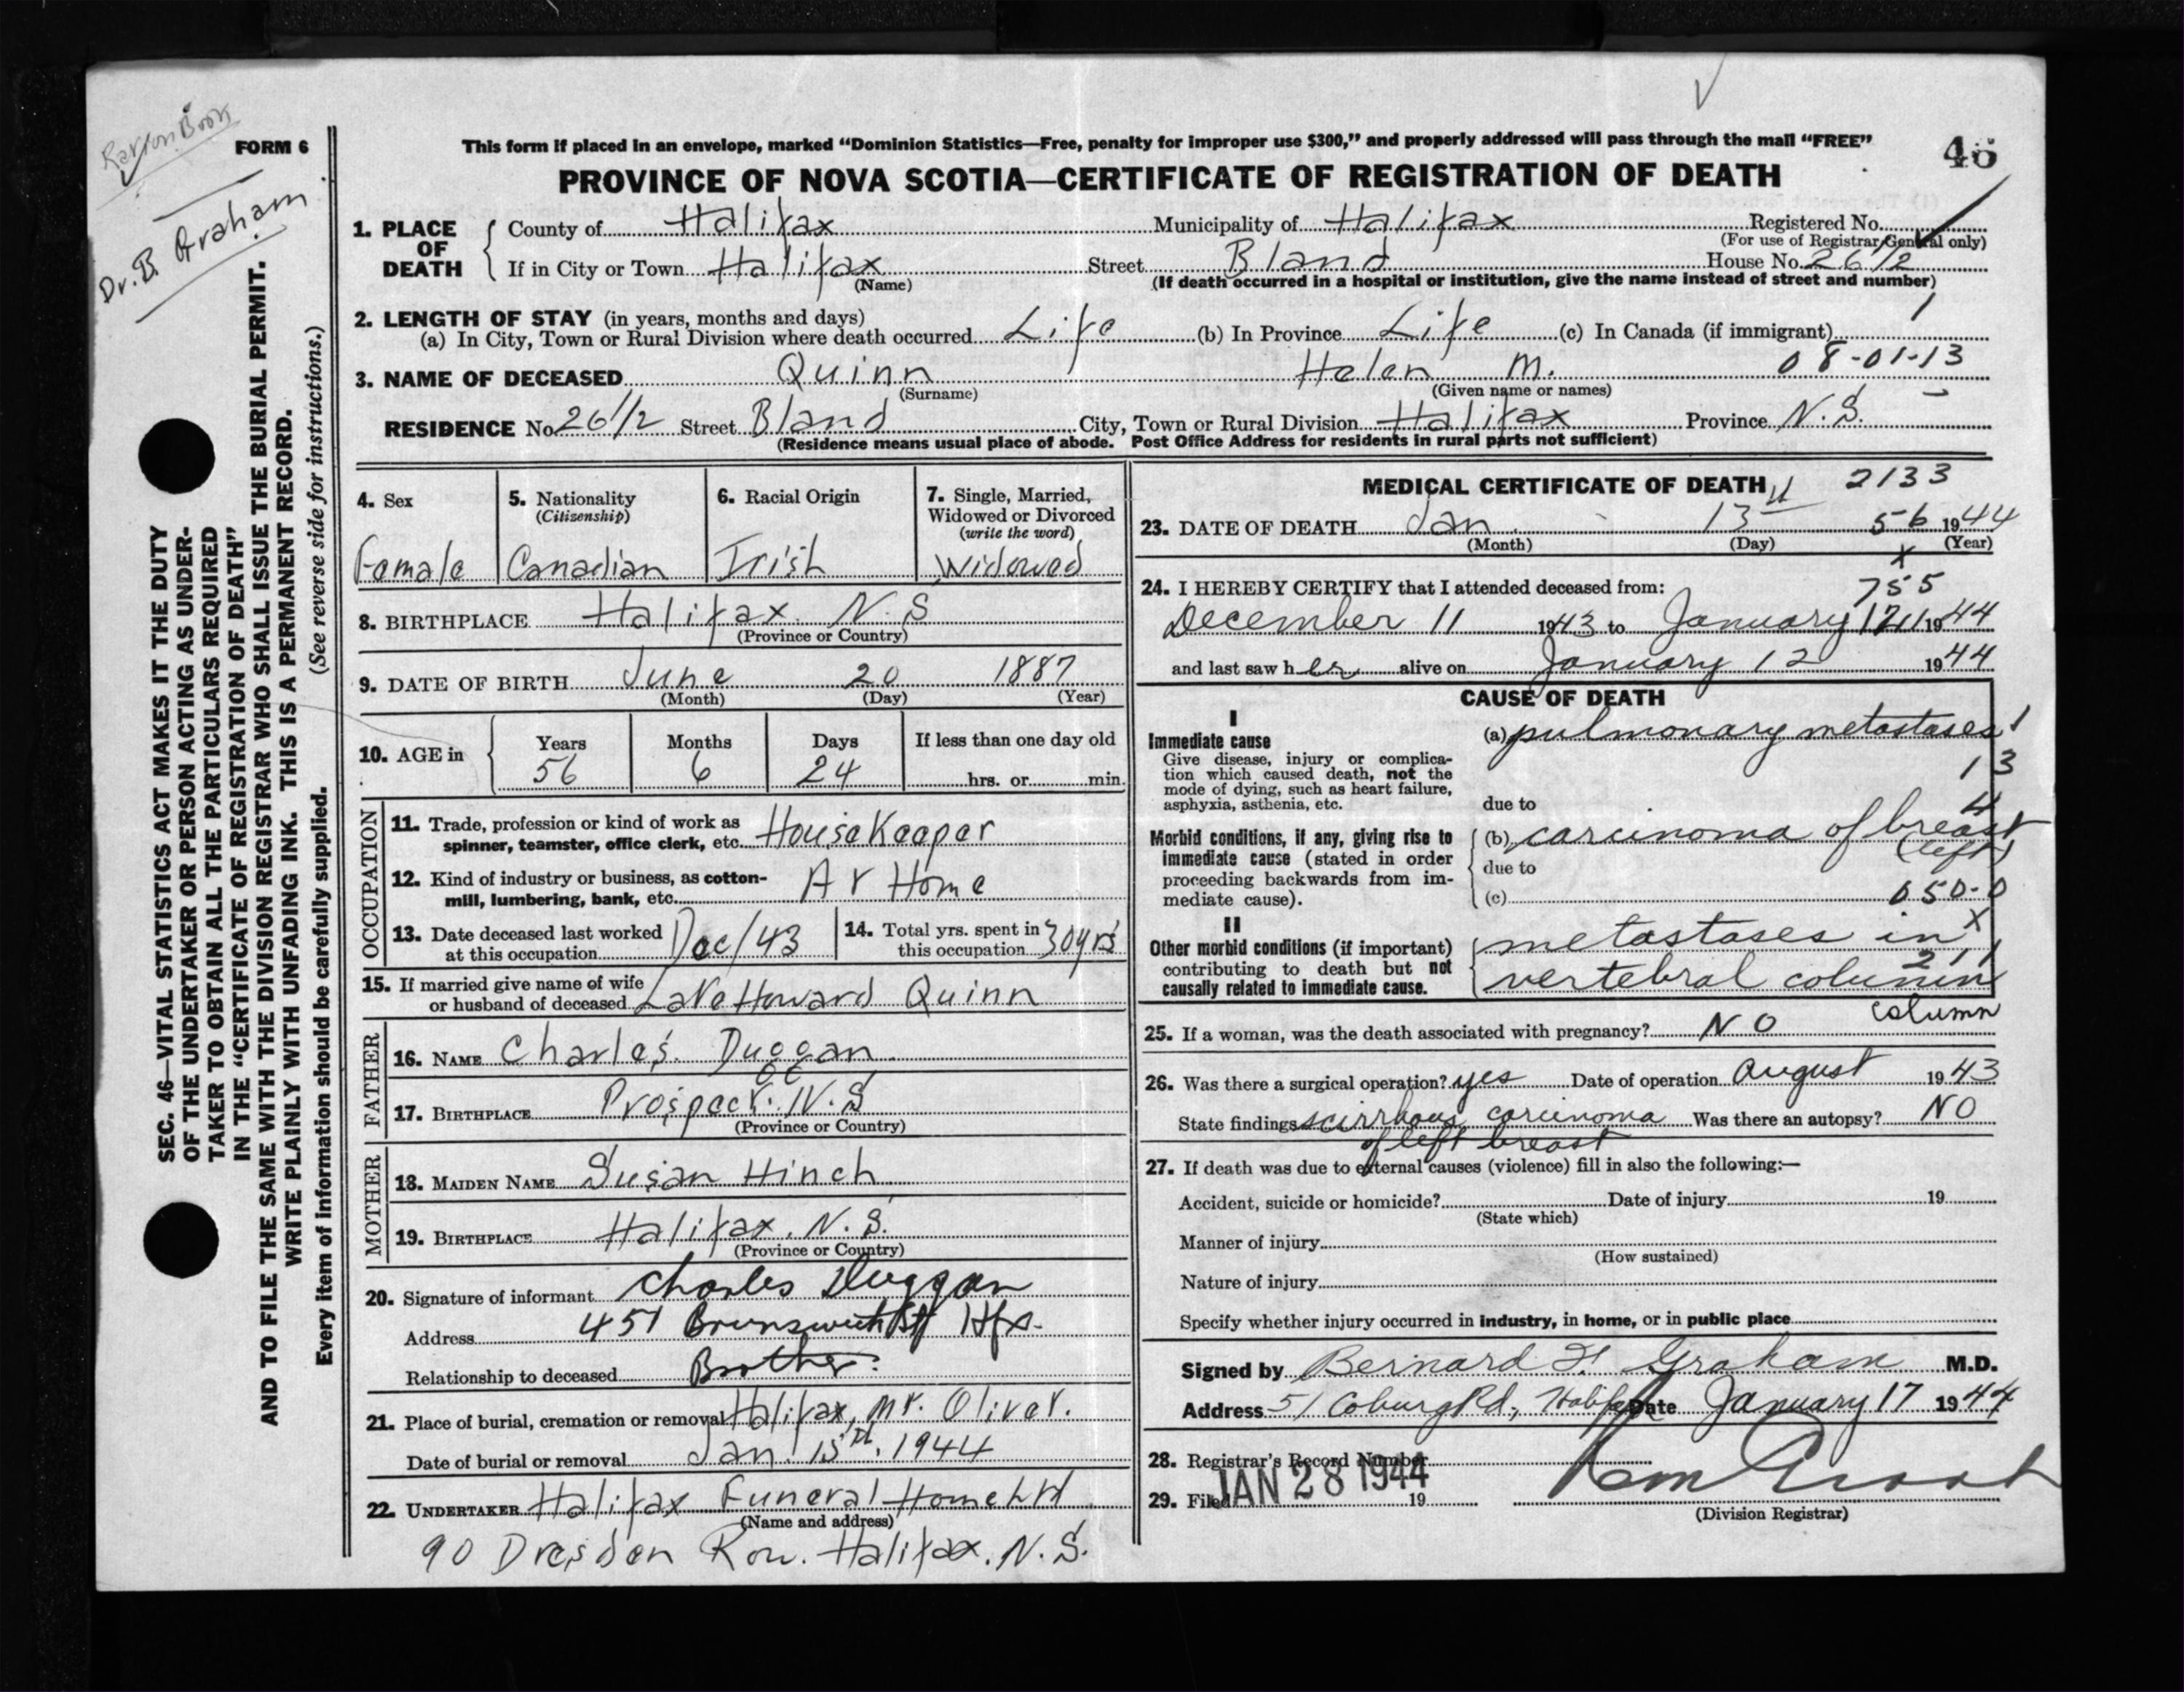 Dr. B. Graham
FORM 6
SEC. 46—VITAL STATISTICS ACT MAKES IT THE DUTY
OF THE UNDERTAKER OR PERSON ACTING AS UNDER-
TAKER TO OBTAIN ALL THE PARTICULARS REQUIRED
IN THE "CERTIFICATE OF REGISTRATION OF DEATH"
AND TO FILE THE SAME WITH THE DIVISION REGISTRAR WHO SHALL ISSUE THE BURIAL PERMIT.
WRITE PLAINLY WITH UNFADING INK. THIS IS A PERMANENT RECORD.
Every item of information should be carefully supplied. (See reverse side for instructions.)
This form if placed in an envelope, marked "Dominion Statistics—Free, penalty for improper use $300," and properly addressed will pass through the mail "FREE"
PROVINCE OF NOVA SCOTIA—CERTIFICATE OF REGISTRATION OF DEATH
1. PLACE OF DEATH
County of Halifax Municipality of Halifax Registered No.
(For use of Registrar General only)
If in City or Town Halifax Street Bland House No. 26 1/2
(Name) (If death occurred in a hospital or institution, give the name instead of street and number)
2. LENGTH OF STAY (in years, months and days)
(a) In City, Town or Rural Division where death occurred Life (b) In Province Life (c) In Canada (if immigrant)
08-01-13
3. NAME OF DECEASED Quinn Helen M.
(Surname) (Given name or names)
RESIDENCE No 26 1/2 Street Bland City, Town or Rural Division Halifax Province N.S.
(Residence means usual place of abode. Post Office Address for residents in rural parts not sufficient)
4. Sex
Female
5. Nationality
(Citizenship)
Canadian
6. Racial Origin
Irish
7. Single, Married,
Widowed or Divorced
(write the word)
Widowed
8. BIRTHPLACE Halifax. N.S
(Province or Country)
9. DATE OF BIRTH June 20 1887
(Month) (Day) (Year)
10. AGE in
Years Months Days If less than one day old
56 6 24 hrs. or min.
OCCUPATION
11. Trade, profession or kind of work as
spinner, teamster, office clerk, etc. HouseKeeper
12. Kind of industry or business, as cotton-
mill, lumbering, bank, etc. At Home
13. Date deceased last worked
at this occupation Dec/43
14. Total yrs. spent in
this occupation 30yrs
15. If married give name of wife
or husband of deceased Howard Quinn
FATHER
16. NAME Charles. Duggan
17. BIRTHPLACE Prospect. N.S
(Province or Country)
MOTHER
18. MAIDEN NAME Susan Hinch
19. BIRTHPLACE Halifax. N.S.
(Province or Country)
20. Signature of informant Charles Duggan
Address 451 Brunswick St Hfx.
Relationship to deceased Brother.
21. Place of burial, cremation or removal Halifax, Mt. Olivet.
Date of burial or removal Jan. 15th. 1944
22. UNDERTAKER Halifax Funeral Home Ltd
(Name and address)
90 Dresden Row. Halifax. N.S.
MEDICAL CERTIFICATE OF DEATH 2133
23. DATE OF DEATH Jan. 13 56 1944
(Month) (Day) (Year)
24. I HEREBY CERTIFY that I attended deceased from:
755
December 11 1943 to January 12 1944
and last saw her alive on January 12 1944
CAUSE OF DEATH
I
Immediate cause
Give disease, injury or complica-
tion which caused death, not the
mode of dying, such as heart failure,
asphyxia, asthenia, etc.
(a) pulmonary metastases
due to
Morbid conditions, if any, giving rise to
immediate cause (stated in order
proceeding backwards from im-
mediate cause).
(b) carcinoma of breast
(left)
due to
(c) 050-0
II
Other morbid conditions (if important)
contributing to death but not
causally related to immediate cause.
metastases in
vertebral column
column
25. If a woman, was the death associated with pregnancy? NO
26. Was there a surgical operation? yes Date of operation August 1943
State findings scirrhous carcinoma Was there an autopsy? NO
of left breast
27. If death was due to external causes (violence) fill in also the following:—
Accident, suicide or homicide? Date of injury 19
(State which)
Manner of injury
(How sustained)
Nature of injury
Specify whether injury occurred in industry, in home, or in public place
Signed by Bernard F. Graham M.D.
Address 51 Coburg Rd., Date January 17 1944
28. Registrar's Record Number
29. Filed JAN 28 1944 19
(Division Registrar)